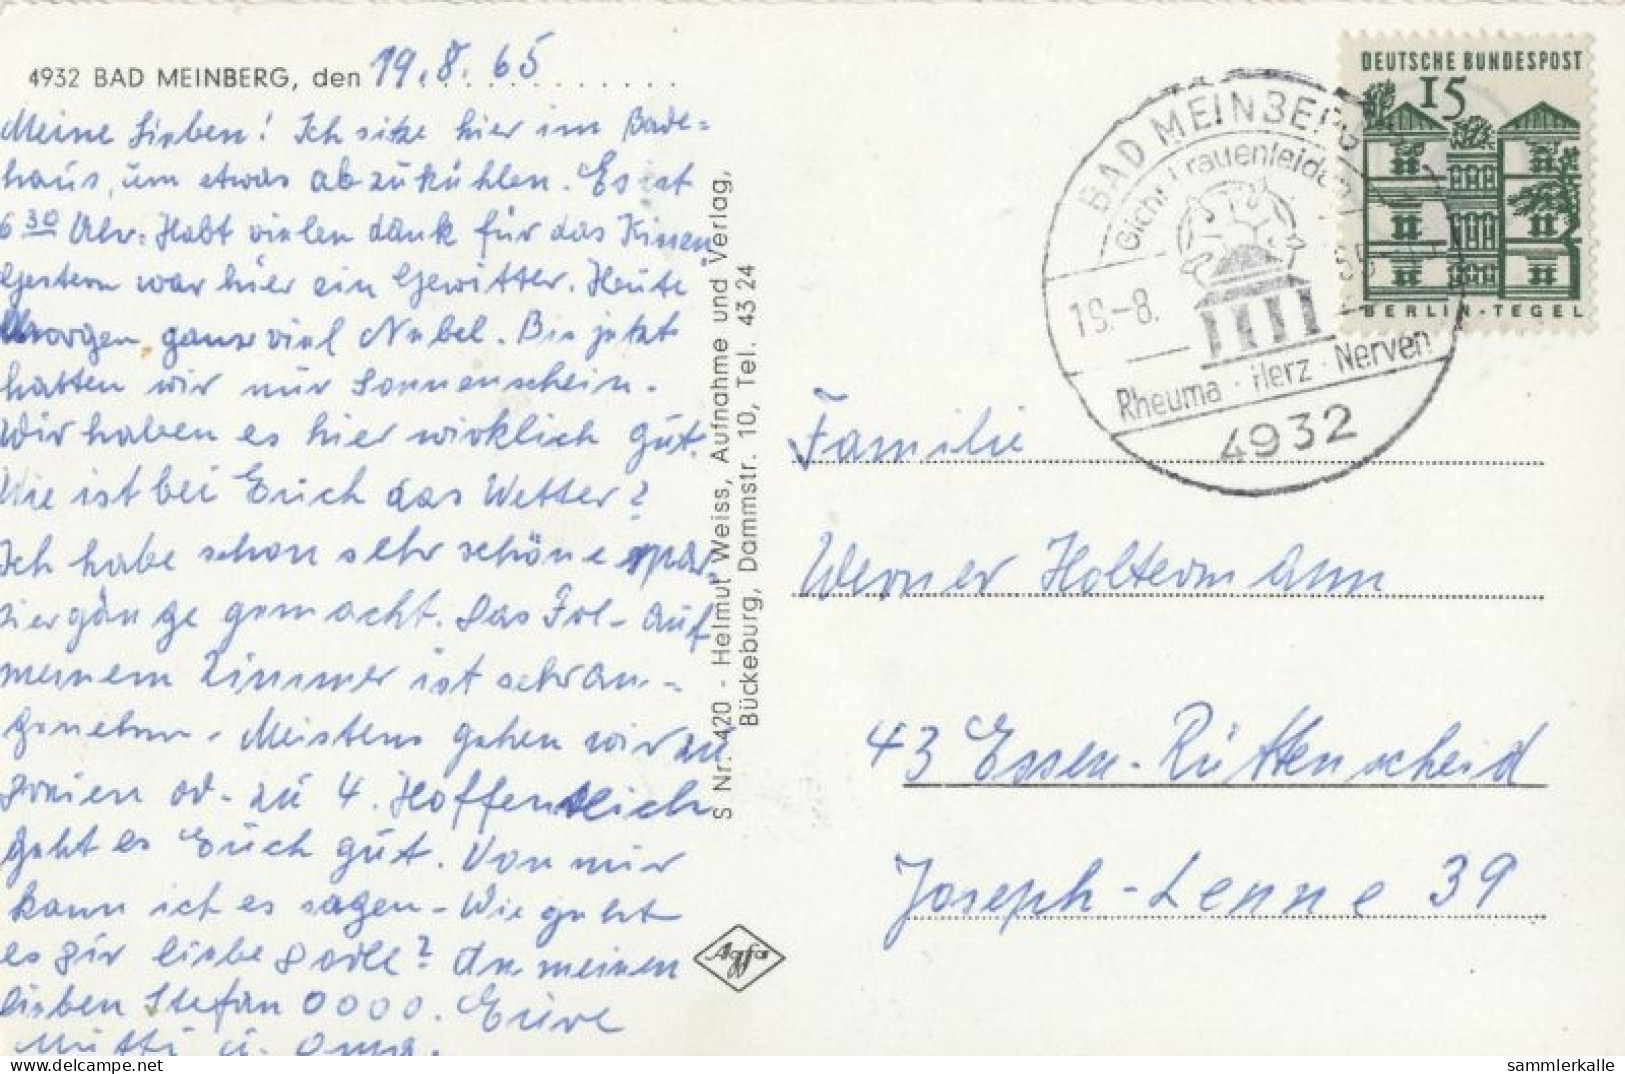 4932 BAD MEINBERG, den 19.8.65
Meine Lieben! Ich sitze hier im Bade=
haus, um etwas abzukühlen. Es ist
6 30 Uhr. Habt vielen dank für das Kissen
Gestern war hier ein Gewitter. Heute
Morgen ganz viel Nebel. Bis jetzt
hatten wir nur Sonnenschein.
Wir haben es hier wirklich gut.
Wie ist bei Euch das Wetter?
Ich habe schon sehr schöne spa-
ziergänge gemacht. Das auf
meinem Zimmer ist sehr an-
genehm. Meistens gehen wir zu
od. zu 4. Hoffentlich
geht es Euch gut. Von mir
kann ich es sagen. Wie geht
es Dir liebe ? An meinen
lieben Stefan 0000. Eure
Mutti u. Oma.
S Nr. 420 - Helmut Weiss, Aufnahme und Verlag,
Bückeburg, Dammstr. 10, Tel. 43 24
Agfa
DEUTSCHE BUNDESPOST
15
BERLIN-TEGEL
BAD MEINBERG
Gicht Frauenleiden
19.-8.
Rheuma · Herz · Nerven
4932
Familie
Werner Holtermann
43 Essen-Rüttenscheid
Joseph-Lenne 39
delcampe.net
sammlerkalle